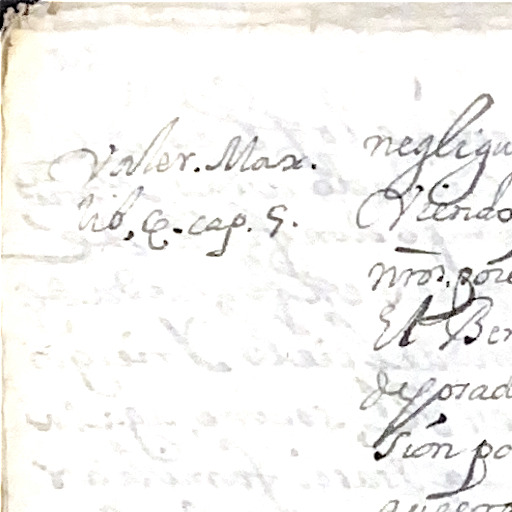 Valer. Max.
lib, 6. cap. 5.
negligu
Viendo
nr̃os. pore
El Ber
sion po